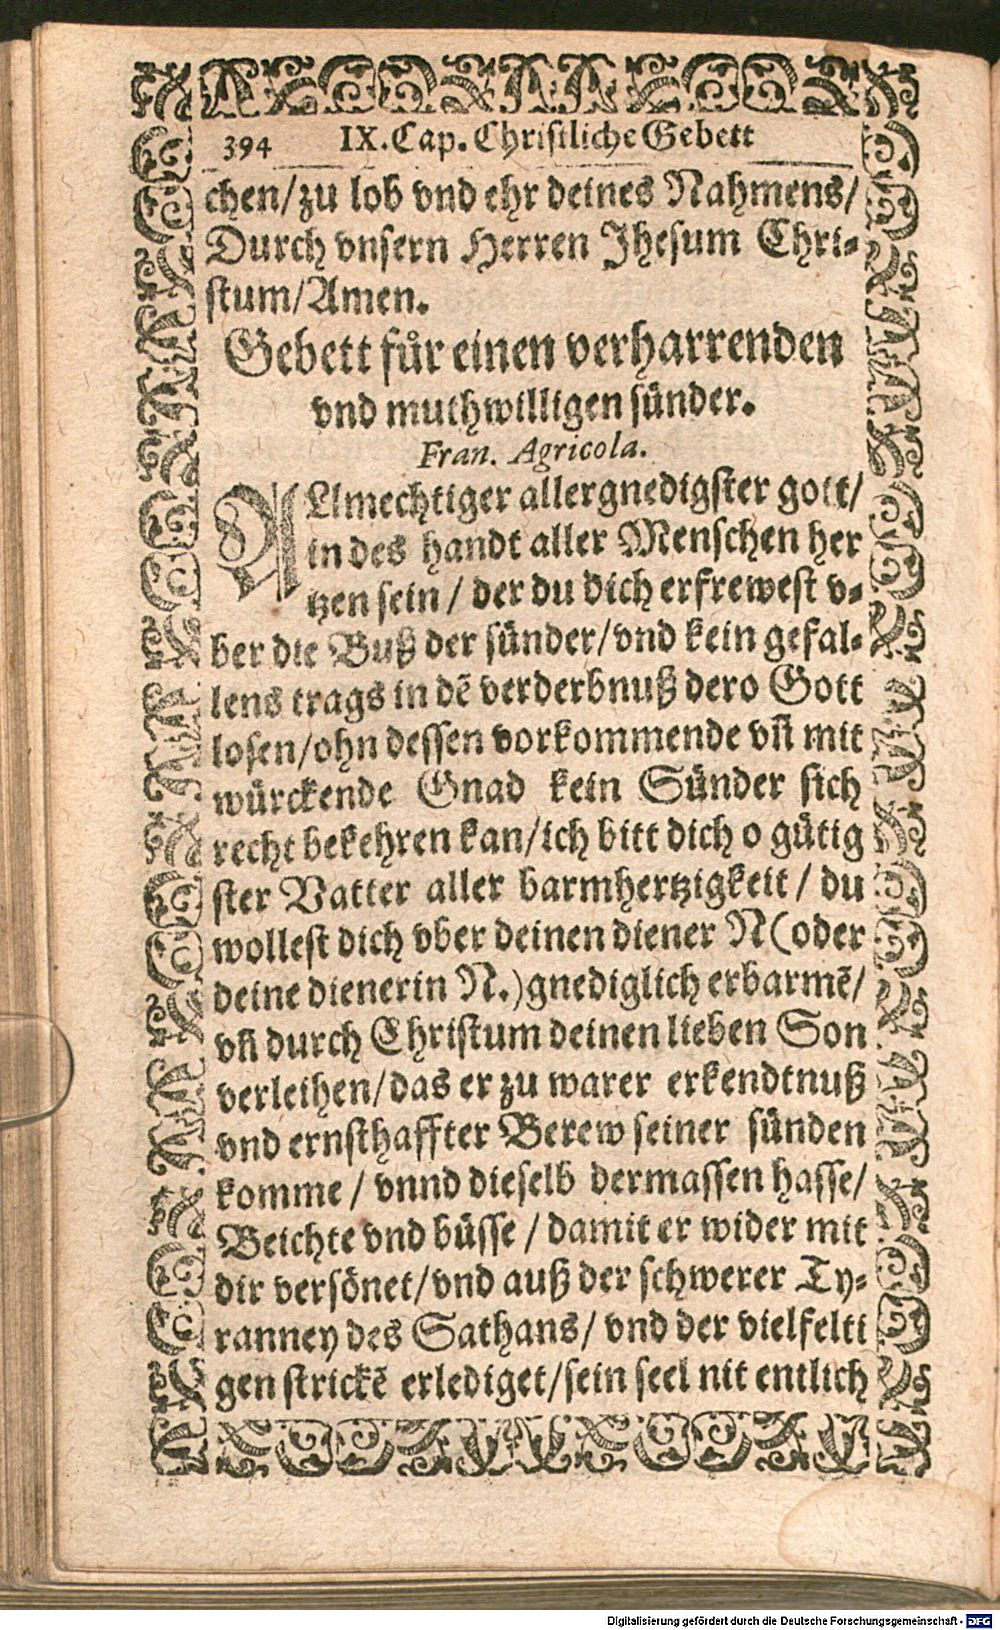 394 IX. Cap. Christliche Gebett
chen/zu lob vnd ehr deines Nahmens/
Durch vnsern Herren Jhesum Chri-
stum/Amen.
Gebett fůr einen verharrenden
vnd muthwilligen sünder.
Fran. Agricola.
ALlmechtiger allergnedigster gott/
in des handt aller Menschen her
tzen sein / der du dich erfrewest v-
ber die Buß der sünder/vnd kein gefal-
lens trags in dē verderbnuß dero Gott
losen/ohn dessen vorkommende vñ mit
würckende Gnad kein Sünder sich
recht bekehren kan/ich bitt dich o gütig
ster Vatter aller barmhertzigkeit / du
wollest dich vber deinen diener N(oder
deine dienerin N.)gnediglich erbarmē/
vñ durch Christum deinen lieben Son
verleihen/das er zu warer erkendtnuß
vnd ernsthaffter Berew seiner sünden
komme / vnnd dieselb dermassen hasse/
Beichte vnd büsse / damit er wider mit
dir versönet/vnd auß der schwerer Ty-
ranney des Sathans/ vnd der vielfelti
gen strickē erlediget/sein seel nit entlich
Digitalisierung gefördert durch die Deutsche Forschungsgemeinschaft - DFG